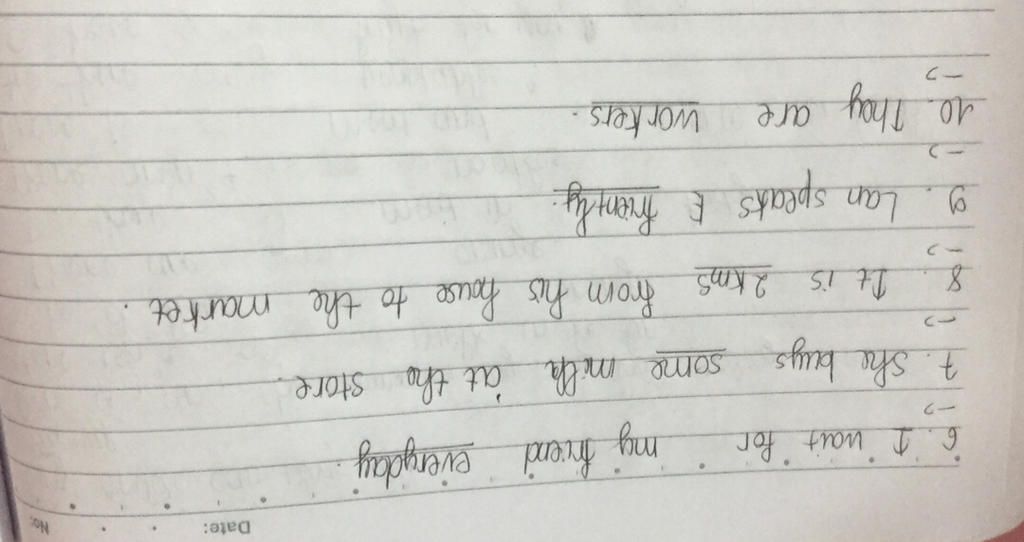 Date: No:
6. I wait for my friend everyday.
->
7. She buys some milk at the store.
->
8. It is 2kms from his house to the market.
->
9. Lan speaks E friently.
->
10. They are workers.
->